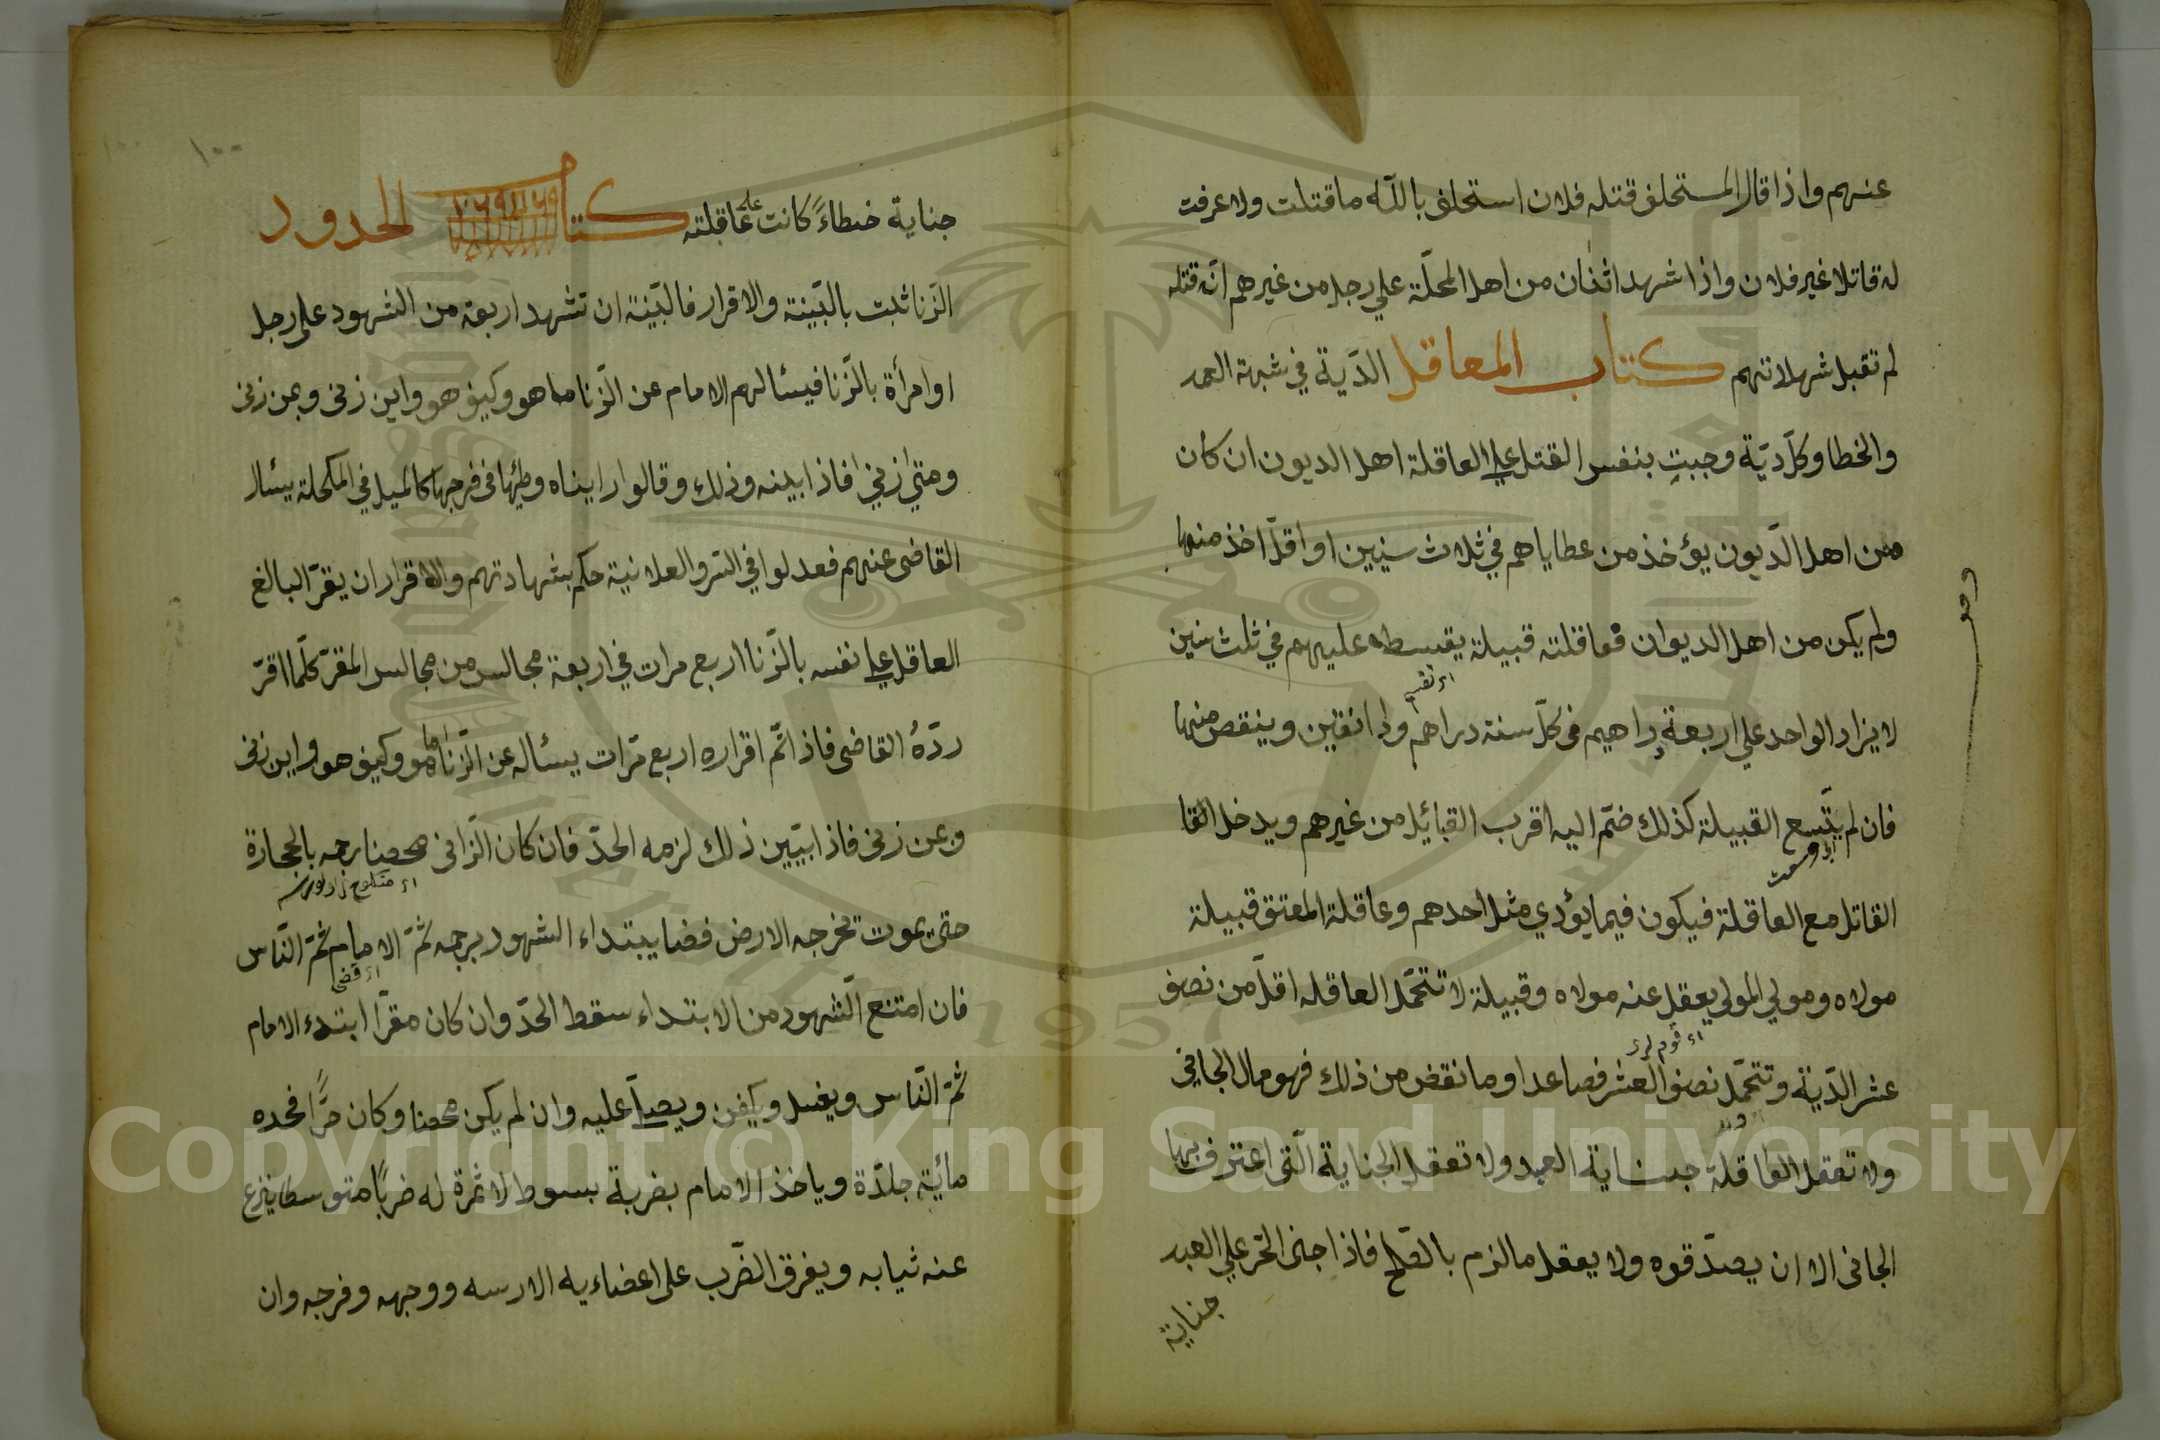 عنهم واذا قال المستحلف قتله فلان استحلف بالله ما قتلت ولا عرفت
له قاتلا غير فلان واذا شهد اثنان من اهل المحلّة علي رجل من غيرهم انّه قتله
لم تقبل شهادتهم كتاب المعاقل الدّية في شبهة العمد
والخطا وكلّ ديّة وجبت بنفس القتل علي العاقلة اهل الديون ان كان
من اهل الدّيون يؤخذ من عطاياهم في ثلاث سنين او اقلّ اخذ منها
ولم يكن من اهل الديوان فعاقلته قبيلة يقسطه عليهم في ثلث سنين
لا يزاد الواحد علي اربعة دراهيم في كلّ سنة دراهم ودانقين وينقص منها
فان لم يتّسع القبيلة كذلك ضمّ اليه اقرب القبائيل من غيرهم ويدخل القا
القاتل مع العاقلة فيكون فيما يؤدي مثل احدهم وعاقلة المعتق قبيلة
مولاه ومولي المولي يعقل عنه مولاه وقبيلة لا تتحمّل العاقله اقلّ من نصف
عشر الدّية وتتحمّل نصف العشر فصاعدا وما نقض من ذلك فهو مال الجاني
ولا تعقل العاقلة جناية العبد ولا تعقل الجناية الّتي اعترف بها
الجاني الا ان يصدّقوه ولا يعقل ما لزم بالصّلح فاذا جني الحّر علي العبد
جناية
جناية خطاءً كانت علي عاقلته كتاب الحدود
الزّنا ثبت بالبّينة والاقرار فالبّينة ان تشهد اربعة من الشهود علي رجل
او امرأة بالزّنا فيسئالهم الامام عن الزّنا ما هو وكيف هو واين زنى وبمن زنى
ومتي زني فاذا بينه وذلك وقالوا رايناه وطئها في فرجها كالميل في المكحلة يسئال
القاضى عنهم فعدلوا في السّر والعلانية حكم بشهادتهم والاقرار ان يقرّ البالغ
العاقل علي نفسه بالزّنا اربع مرات في اربعة مجالس من مجالس المقرّ كلّما اقرّ
ردّهُ القاضى فاذا تمّ اقراره اربع مّرات يسأله عن الزّنا ما هو وكيف هو واين زنى
وبمن زنى فاذا بيّين ذلك لزمه الحدّ فان كان الزّانى محصنا رجمه بالحجارة
حتى يموت تخرجه الارض فضا يبتداء الشهود برجمه ثمّ الامام ثمّ النّاس
فان امتنع الشّهود من الابتداء سقط الحدّ وان كان مقرّا ابتدء الامام
ثمّ النّاس ويغسل ويكفن ويصلّ عليه وان لم يكن محصنا وكان حرًّا فحده
مأية جلدّة وياخذ الامام بضربة بسوط لا ثمرة له ضربًا متوسطا ينزع
عنه ثيابه ويفرق الضّرب على اعضاءيه الا رسه ووجهه وفرجه وان
١٠٠
Copyright © King Saud University
1957